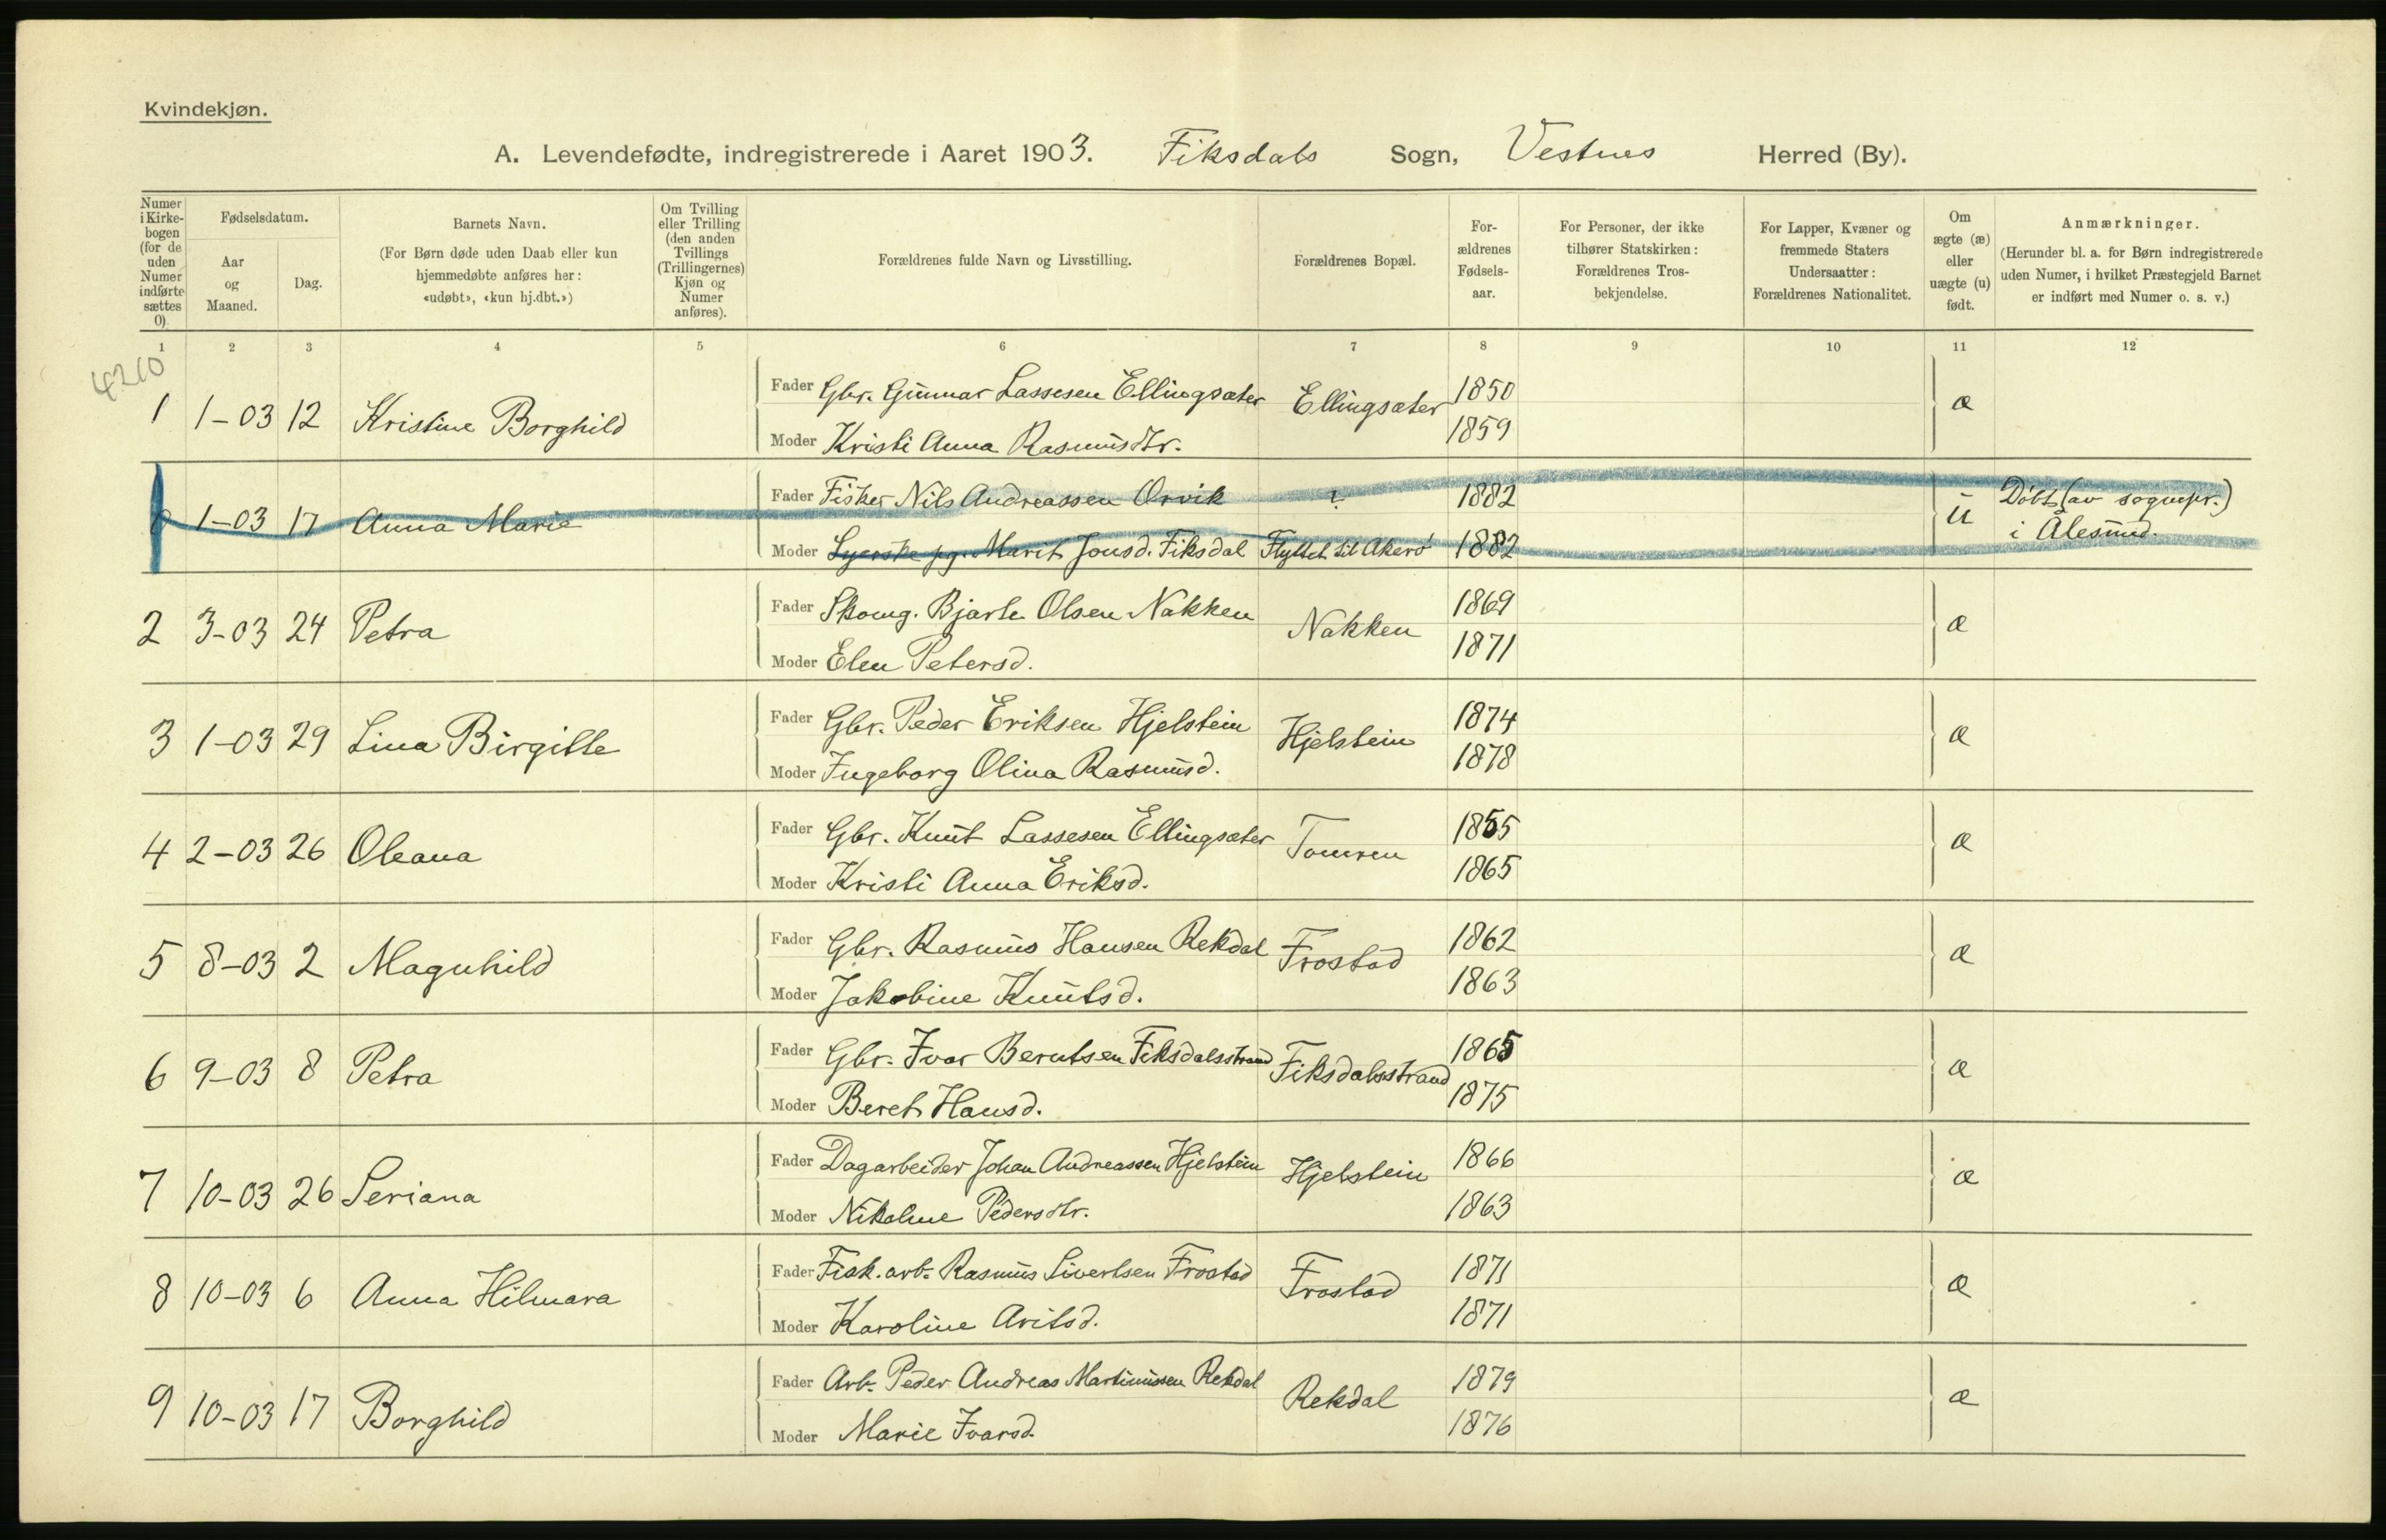 Kvindekjøn.
A. Levendefødte, indregistrerede i Aaret 1903. Fiksdals Sogn, Vestnes Herred (By).
Numer i Kirkebogen (for de uden Numer indførte sættes 0).
Fødselsdatum.
Aar og Maaned.
Dag.
Barnets Navn.
(For Børn døde uden Daab eller kun hjemmedøbte anføres her: «udøbt», «kun hj.dbt.»)
Om Tvilling eller Trilling (den anden Tvillings (Trillingernes) Kjøn og Numer anføres).
Forældrenes fulde Navn og Livsstilling.
Forældrenes Bopæl.
Forældrenes Fødselsaar.
For Personer, der ikke tilhører Statskirken: Forældrenes Trosbekjendelse.
For Lapper, Kvæner og fremmede Staters Undersaatter: Forældrenes Nationalitet.
Om ægte (æ) eller uægte (u) født.
Anmærkninger.
(Herunder bl. a. for Børn indregistrerede uden Numer, i hvilket Præstegjeld Barnet er indført med Numer o. s. v.)
1 2 3 4 5 6 7 8 9 10 11 12
4210
1 1-03 12 Kristine Borghild
Fader Gbr. Gunnar Lassesen Ellingsæter Ellingsæter 1850 æ
Moder Kristi Anna Rasmusdtr. 1859
0 1-03 17 Anna Marie
Fader Fisker Nils Andreassen Orvik ? 1882 u Døbt (av sognepr.)
Moder Syerske pg. Marit Jonsd. Fiksdal Flyttet til Akerø 1882 i Ålesund.
2 3-03 24 Petra
Fader Skomg. Bjarte Olsen Nakken Nakken 1869 æ
Moder Elen Petersd. 1871
3 1-03 29 Lina Birgitte
Fader Gbr. Peder Eriksen Hjelstein Hjelstein 1874 æ
Moder Ingeborg Olina Rasmusd. 1878
4 2-03 26 Oleana
Fader Gbr. Knut Lassesen Ellingsæter Tomren 1855 æ
Moder Kristi Anna Eriksd. 1865
5 8-03 2 Magnhild
Fader Gbr. Rasmus Hansen Rekdal Frostad 1862 æ
Moder Jakobine Knutsd. 1863
6 9-03 8 Petra
Fader Gbr. Ivar Berntsen Fiksdalsstrand Fiksdalsstrand 1865 æ
Moder Beret Hansd. 1875
7 10-03 26 Seriana
Fader Dagarbeider Johan Andreassen Hjelstein Hjelstein 1866 æ
Moder Nikoline Pedersdtr. 1863
8 10-03 6 Anna Hilmara
Fader Fisk. arb. Rasmus Sivertsen Frostad Frostad 1871 æ
Moder Karoline Aritsd. 1871
9 10-03 17 Borghild
Fader Arb. Peder Andreas Martinussen Rekdal Rekdal 1879 æ
Moder Marie Ivarsd. 1876